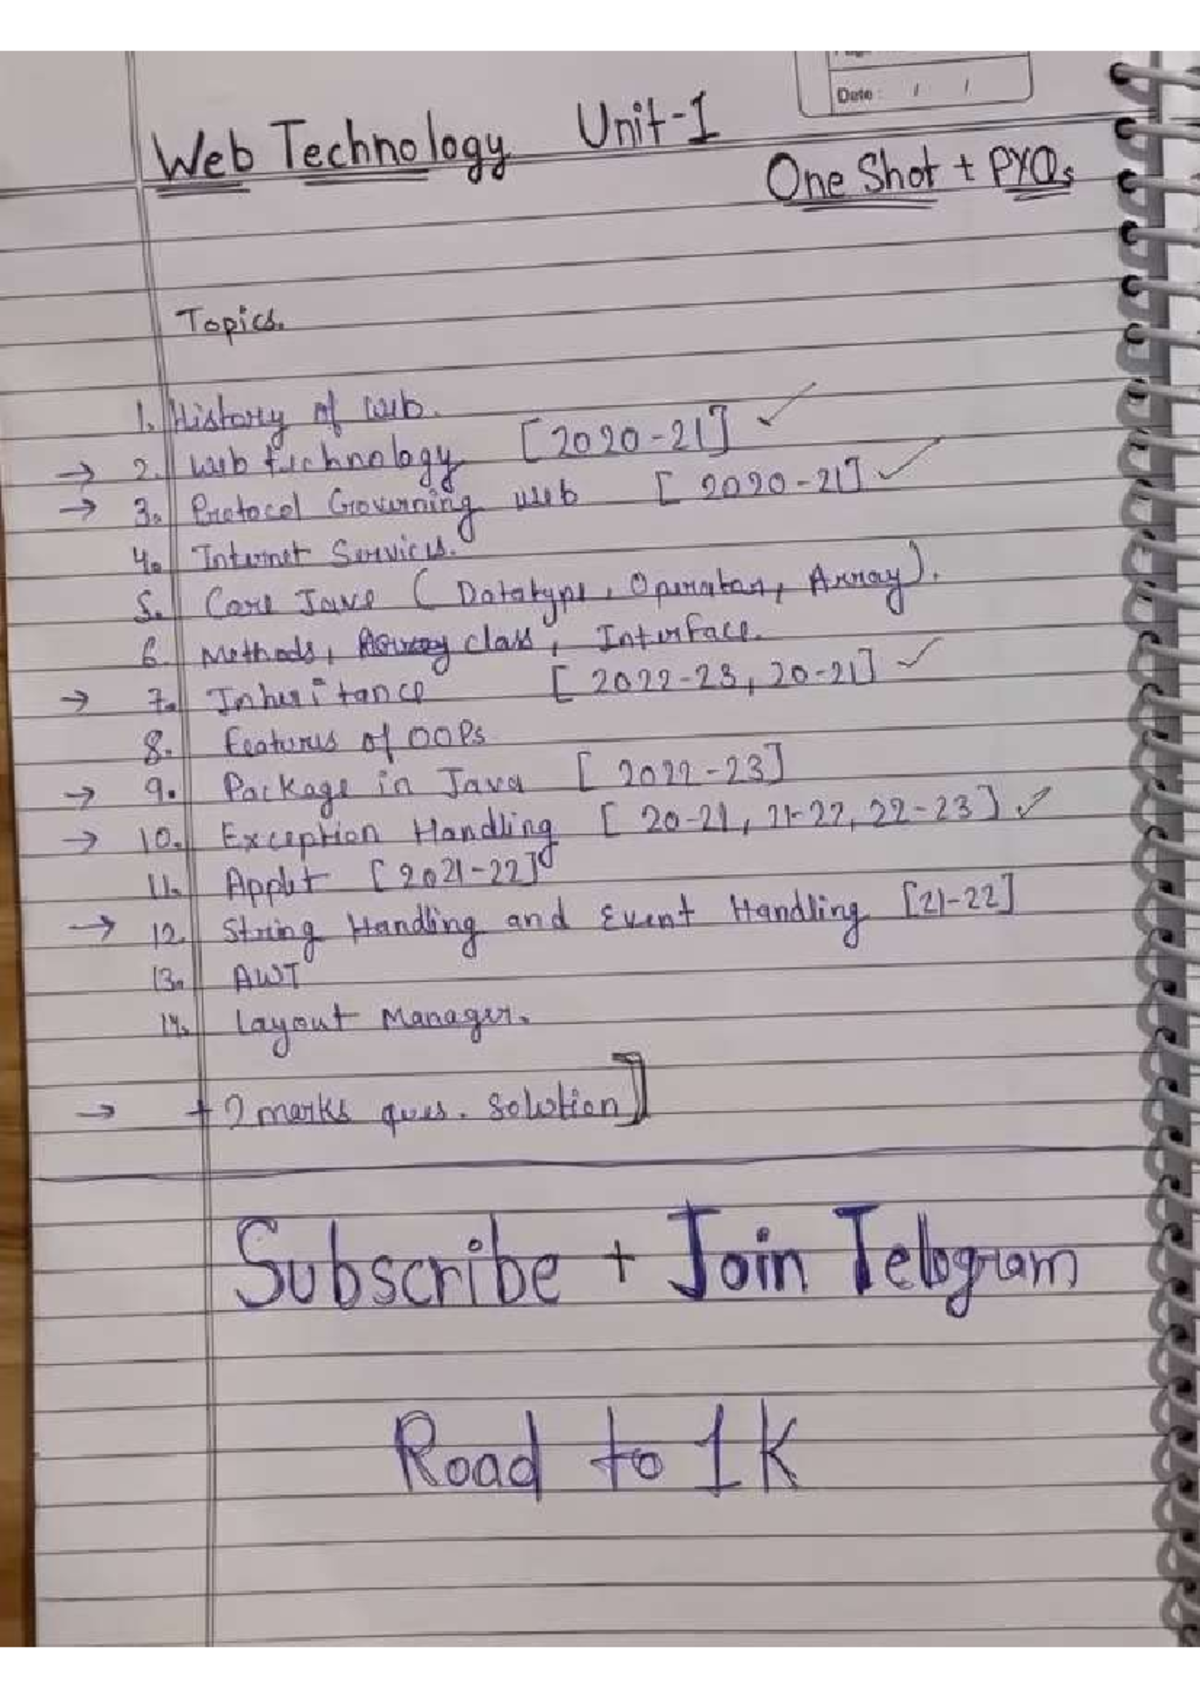 Date: / /
Web Technology Unit-1
One Shot + PYQs
Topics.
1. History of web.
→ 2. Web technology [2020-21] ✓
→ 3. Protocol Governing web [2020-21] ✓
4. Internet Services.
5. Core Java (Datatype, Operator, Array).
6. Methods, class, Interface.
→ 7. Inheritance [2022-23, 20-21] ✓
8. Features of OOPs
→ 9. Package in Java [2022-23]
→ 10. Exception Handling [20-21, 21-22, 22-23] ✓
11. Applet [2021-22]
→ 12. String Handling and Event Handling [21-22]
13. AWT
14. Layout Manager.
→ + 2 marks ques. solution]
Subscribe + Join Telegram
Road to 1K